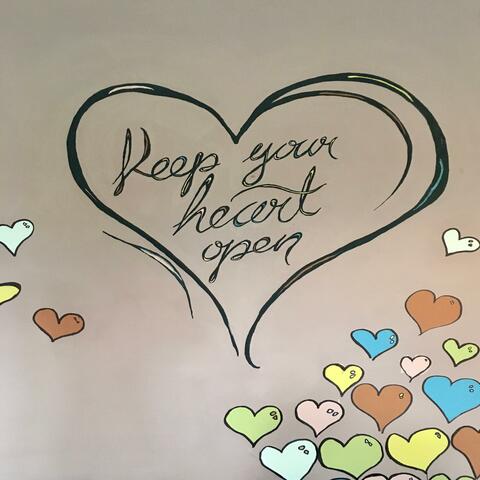 Keep your
heart
open